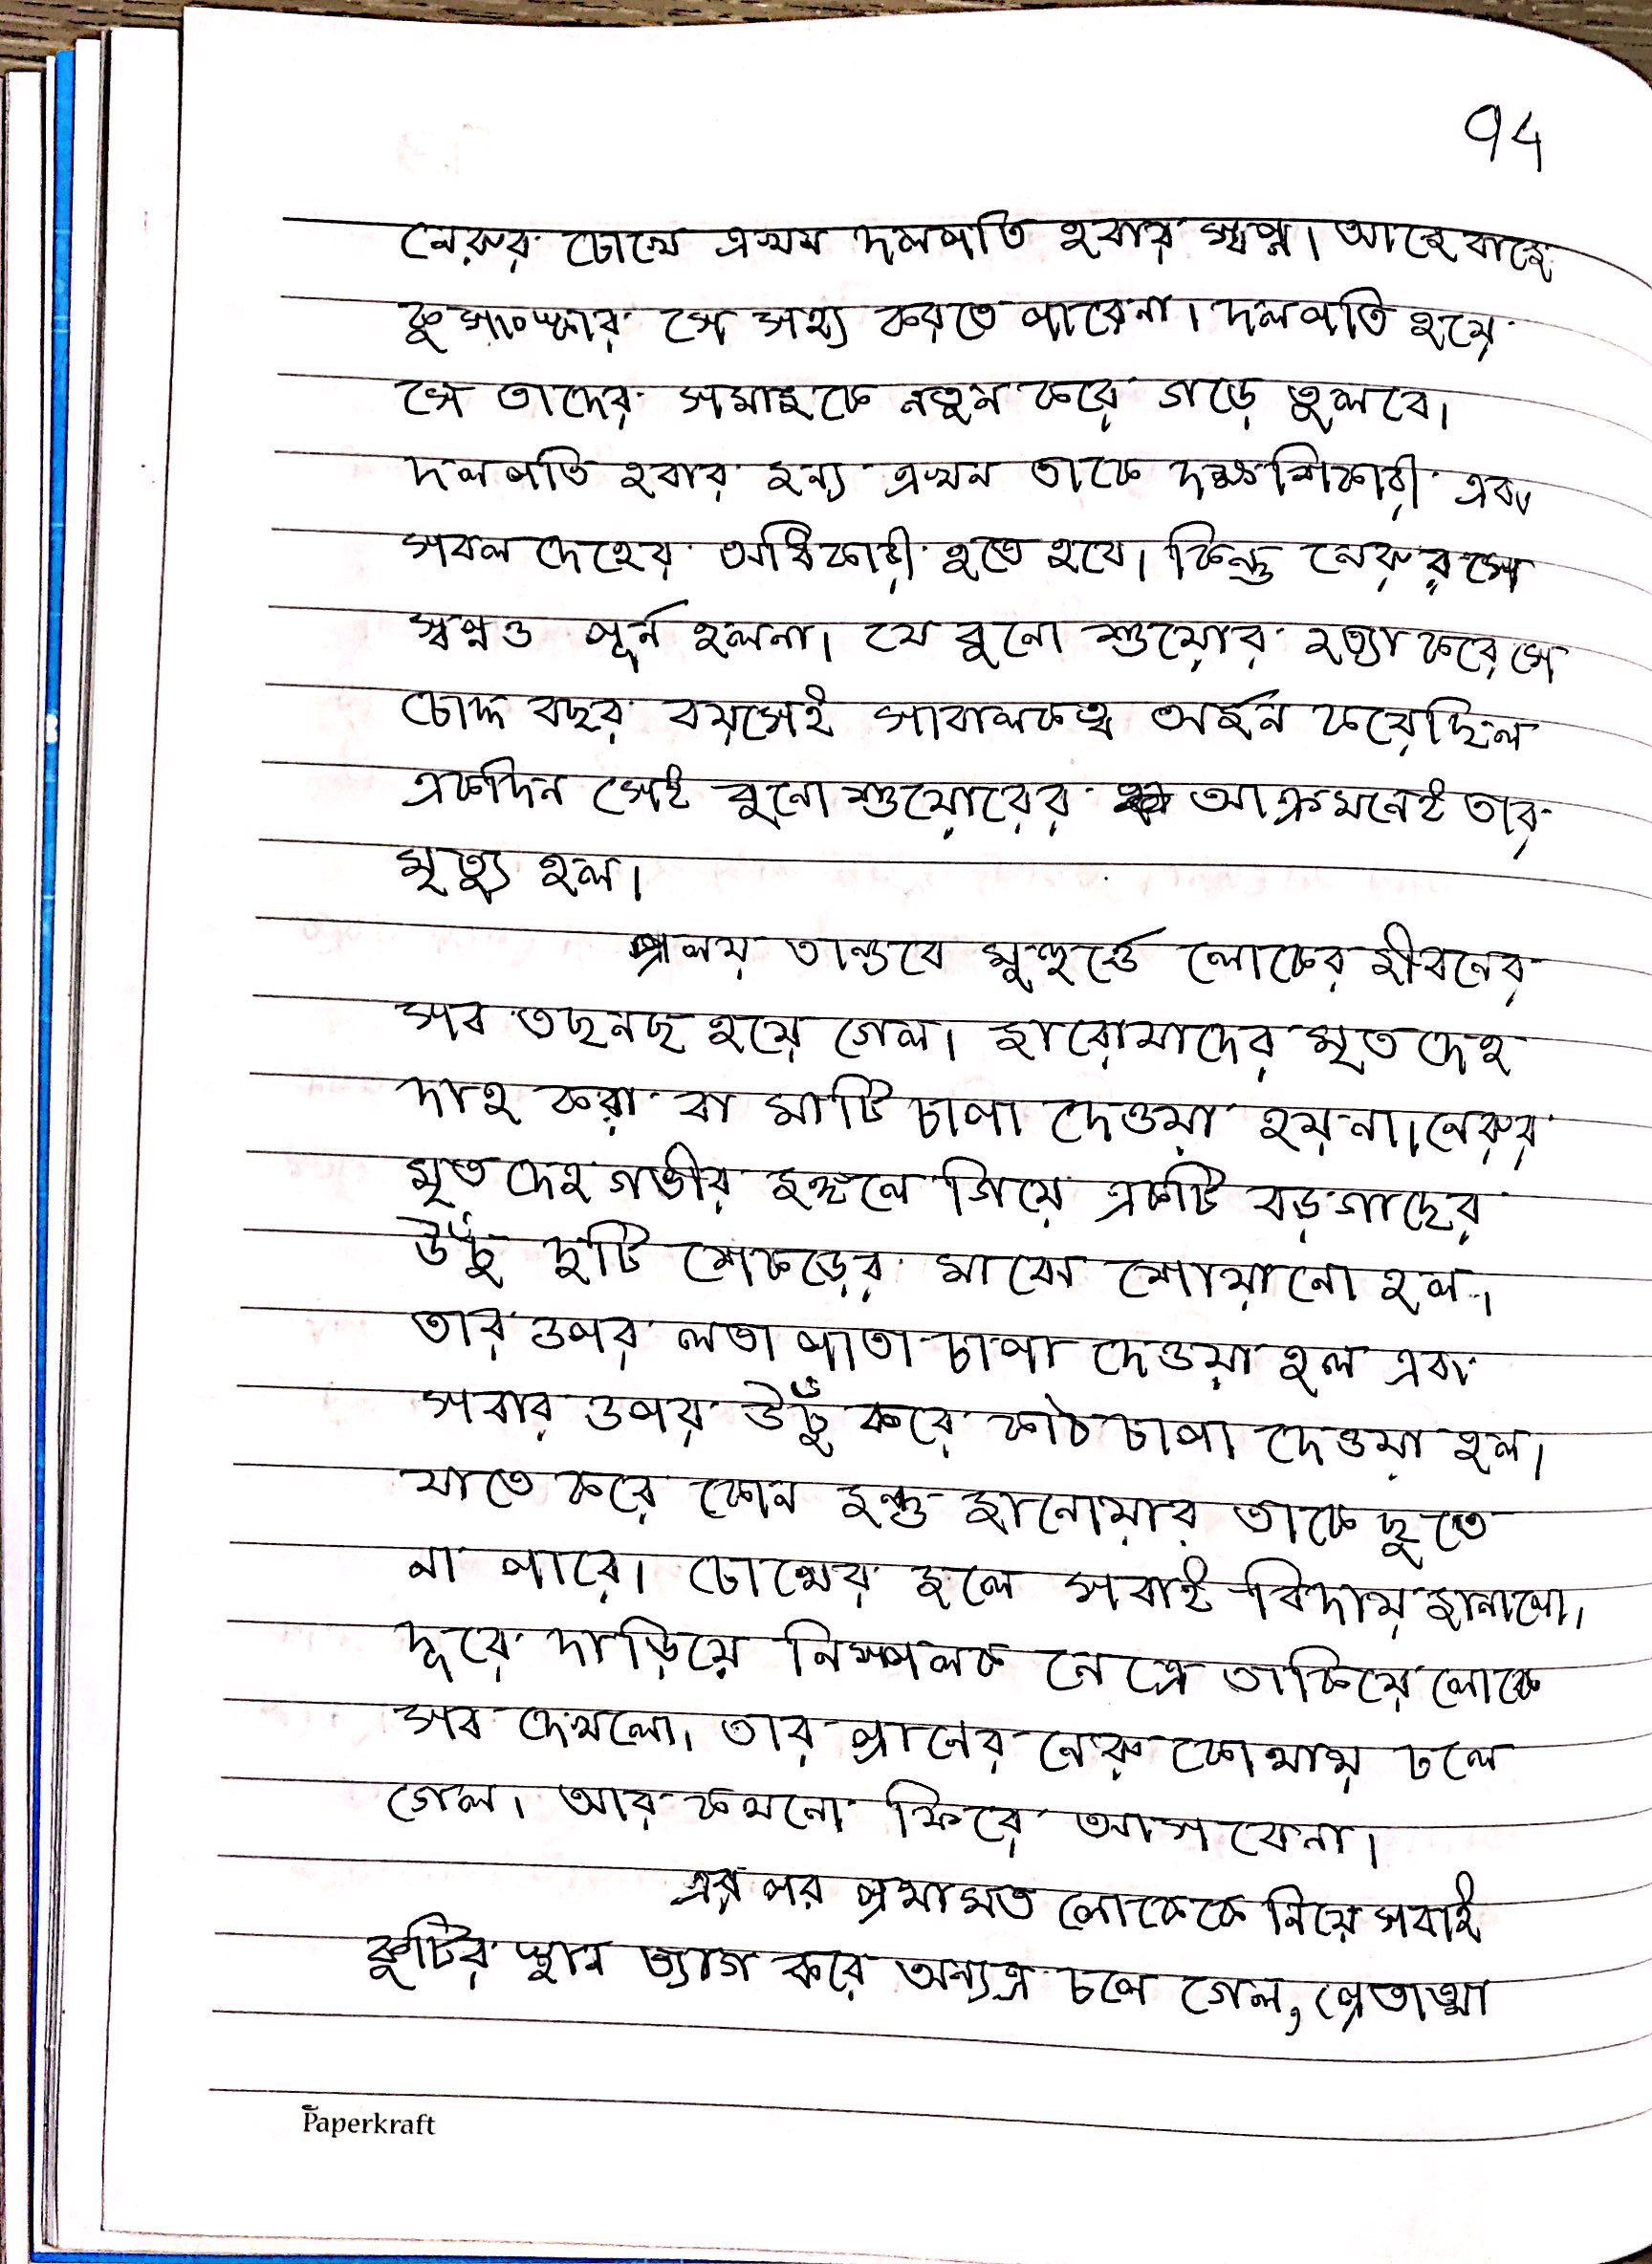 94
নেরুর চোখে এখন দলপতি হবার স্বপ্ন। আরে বারে
কুসংস্কার সে সহ্য করতে পারেনা। দলপতি হয়ে
সে তাদের সমাজকে নতুন করে গড়ে তুলবে।
দলপতি হবার জন্য এখন তাকে দক্ষ শিকারী এবং
সবল দেহের অধিকারী হতে হবে। কিন্তু নেরুর সে
স্বপ্নও পূর্ন হলনা। যে বুনো শুয়োর হত্যা করে সে
চোদ্দ বছর বয়সেই সাবালকত্ব অর্জন করেছিল
একদিন সেই বুনো শুয়োরের আক্রমনেই তার
মৃত্যু হল।
প্রলয় তান্ডবে মুহূর্তে লোকের জীবনের
সব তছনছ হয়ে গেল। জারোয়াদের মৃত দেহ
দাহ করা বা মাটি চাপা দেওয়া হয়না। নেরুর
মৃত দেহ গভীর জঙ্গলে গিয়ে একটি বড় গাছের
উঁচু দুটি শেকড়ের মাঝে শোয়ানো হল।
তার ওপর লতা পাতা চাপা দেওয়া হল এবং
সবার ওপর উঁচু করে কাঠ চাপা দেওয়া হল।
যাতে করে কোন জন্তু জানোয়ার তাকে ছুতে
না পারে। চোখের জলে সবাই বিদায় জানালো।
দূরে দাড়িয়ে নিস্পলক নেত্রে তাকিয়ে লোকে
সব দেখলো। তার প্রানের নেরু কোথায় চলে
গেল। আর কখনো ফিরে আসবেনা।
এর পর প্রথামত লোকেকে নিয়ে সবাই
কুটির স্থান ত্যাগ করে অন্যত্র চলে গেল, প্রেতাত্মা
Paperkraft